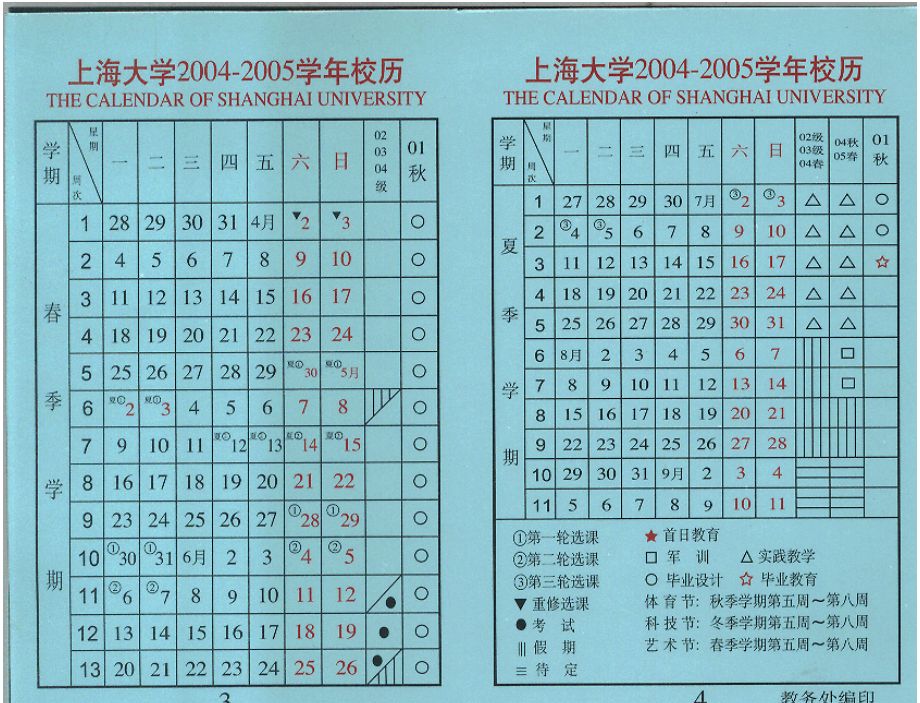 上海大学2004-2005学年校历
THE CALENDAR OF SHANGHAI UNIVERSITY
学期 星期 周次 一 二 三 四 五 六 日 02 03 04 级 01 秋
春季学期
1 28 29 30 31 4月 ▼2 ▼3 ○
2 4 5 6 7 8 9 10 ○
3 11 12 13 14 15 16 17 ○
4 18 19 20 21 22 23 24 ○
5 25 26 27 28 29 夏①30 夏①5月 ○
6 夏①2 夏①3 4 5 6 7 8 ○
7 9 10 11 夏②12 夏②13 夏②14 夏②15 ○
8 16 17 18 19 20 21 22 ○
9 23 24 25 26 27 ①28 ①29 ○
10 ①30 ①31 6月 2 3 ②4 ②5 ○
11 ②6 ②7 8 9 10 11 12 ● ○
12 13 14 15 16 17 18 19 ● ○
13 20 21 22 23 24 25 26 ● ○
3
上海大学2004-2005学年校历
THE CALENDAR OF SHANGHAI UNIVERSITY
学期 星期 周次 一 二 三 四 五 六 日 02级 03级 04春 04秋 05春 01 秋
夏季学期
1 27 28 29 30 7月 ③2 ③3 △ △ ○
2 ③4 ③5 6 7 8 9 10 △ △ ○
3 11 12 13 14 15 16 17 △ △ ☆
4 18 19 20 21 22 23 24 △ △
5 25 26 27 28 29 30 31 △ △
6 8月 2 3 4 5 6 7 □
7 8 9 10 11 12 13 14 □
8 15 16 17 18 19 20 21
9 22 23 24 25 26 27 28
10 29 30 31 9月 2 3 4
11 5 6 7 8 9 10 11
①第一轮选课 ★首日教育
②第二轮选课 □ 军 训 △ 实践教学
③第三轮选课 ○ 毕业设计 ☆ 毕业教育
▼ 重修选课 体 育 节：秋季学期第五周～第八周
● 考 试 科 技 节：冬季学期第五周～第八周
||| 假 期 艺 术 节：春季学期第五周～第八周
≡ 待 定
4 教务处编印